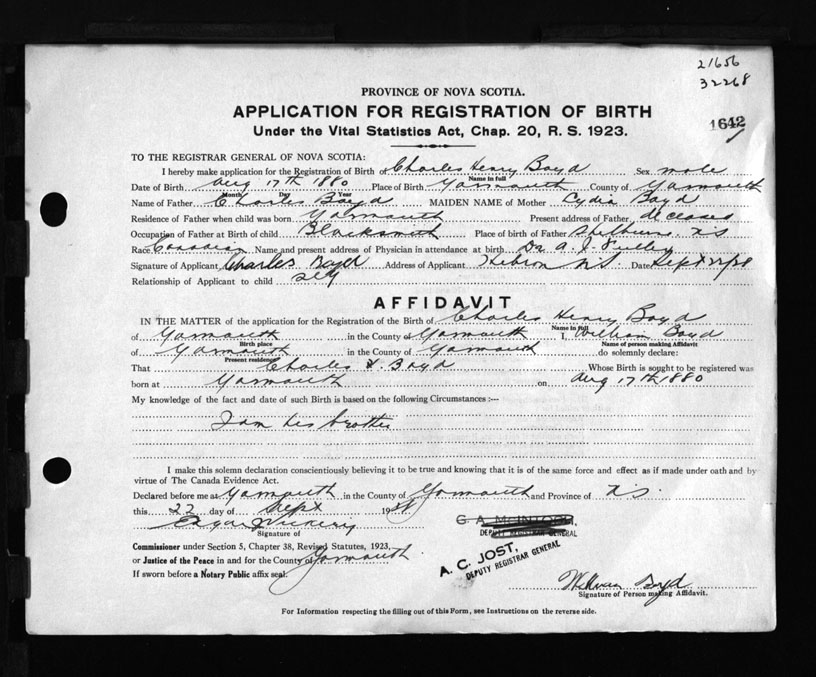 21656
32268
PROVINCE OF NOVA SCOTIA.
APPLICATION FOR REGISTRATION OF BIRTH
Under the Vital Statistics Act, Chap. 20, R. S. 1923.
1642
TO THE REGISTRAR GENERAL OF NOVA SCOTIA:
I hereby make application for the Registration of Birth of Charles Henry Boyd Sex male
Name in full
Date of Birth Aug 17th 1880 Place of Birth Yarmouth County of Yarmouth
Month Day Year
Name of Father Charles Boyd MAIDEN NAME of Mother Lydia Boyd
Residence of Father when child was born Yarmouth Present address of Father deceased
Occupation of Father at Birth of child Blacksmith Place of Birth of Father Shelburn NS
Race Canadian Name and present address of Physician in attendance at birth Dr. A. J. Fuller
Signature of Applicant Charles Boyd Address of Applicant Hebron NS Date Sept
Relationship of Applicant to child self
AFFIDAVIT
IN THE MATTER of the application for the Registration of the Birth of Charles Henry Boyd
Name in full
of Yarmouth in the County of Yarmouth I, William Boyd
Birth place Name of person making Affidavit
of Yarmouth in the County of Yarmouth do solemnly declare:
Present residence
That Charles H. Boyd Whose Birth is sought to be registered was
born at Yarmouth on Aug 17th 1880
My knowledge of the fact and date of such Birth is based on the following Circumstances :---
I am his brother
I make this solemn declaration conscientiously believing it to be true and knowing that it is of the same force and effect as if made under oath and by
virtue of The Canada Evidence Act.
Declared before me at Yarmouth in the County of Yarmouth and Province of N.S.
this 22 day of Sept 19
G. A. McINTOSH,
DEPUTY REGISTRAR GENERAL
Signature of
A. C. JOST,
DEPUTY REGISTRAR GENERAL
Commissioner under Section 5, Chapter 38, Revised Statutes, 1923,
or Justice of the Peace in and for the County of Yarmouth
If sworn before a Notary Public affix seal.
William Boyd
Signature of Person making Affidavit.
For Information respecting the filling out of this Form, see Instructions on the reverse side.